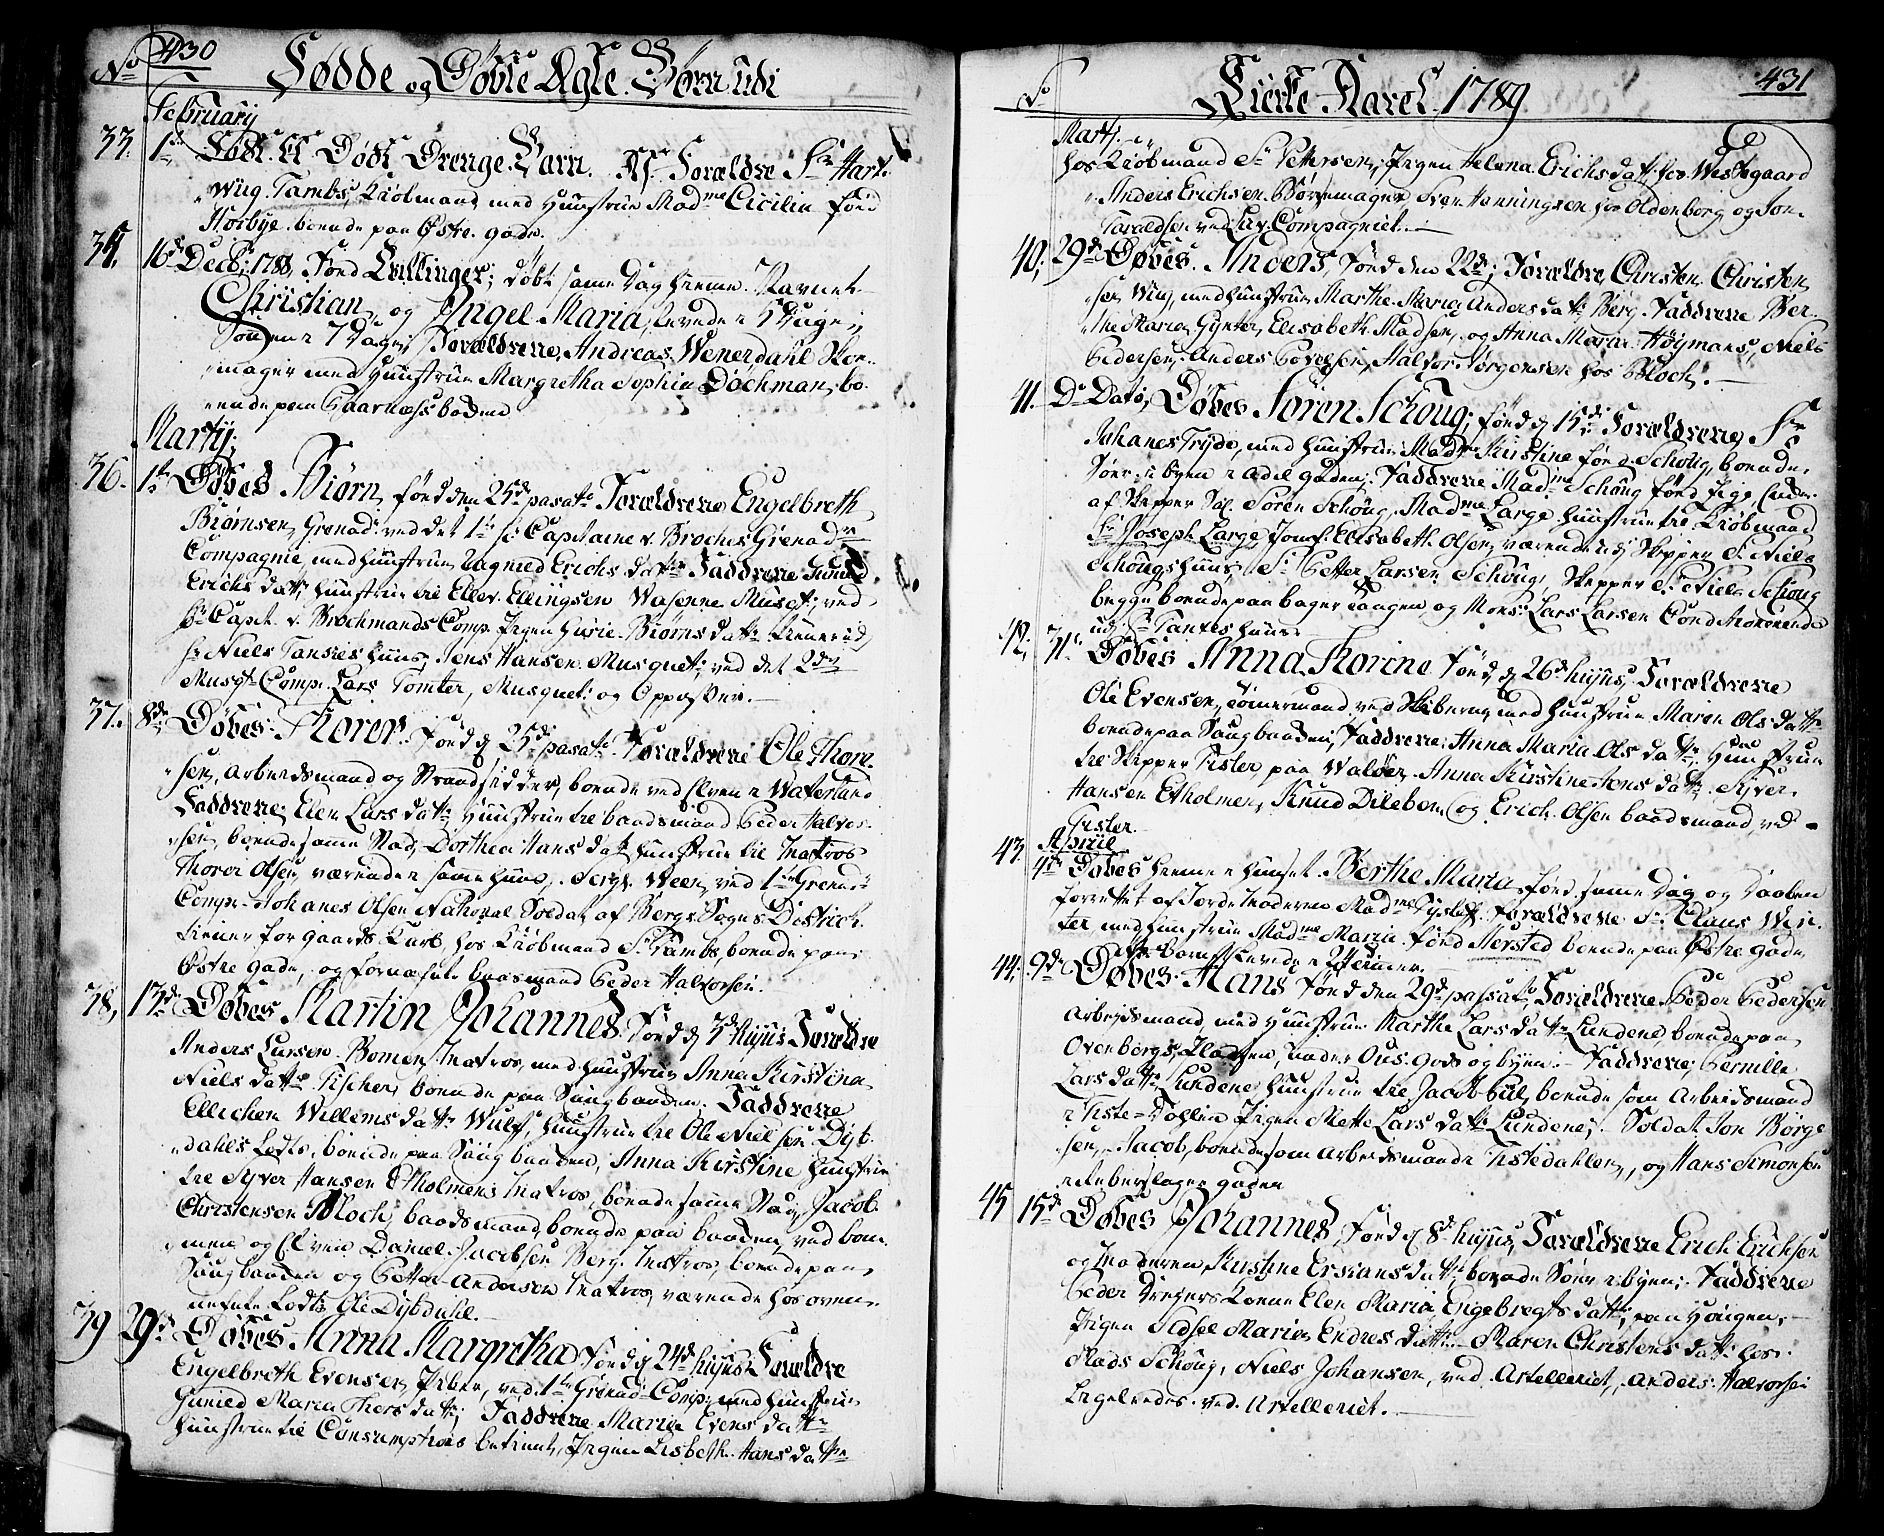 No 430 Fødde og Døbte Ægte Børn udi
February
33. 1te Født Et Dødt Drenge-Barn. Forældre Sr Hart-
wiig Tambs, Kiøbmand med Hustrue Madme Cicilia fød
Horbye boende paa Østre gade.
34. 16de Decbr: 1788, Fød Tvillinger; døbt same Dag hiemme. Navnet
Christian og Ingel Maria, levede 5 Uger
Sønnen 7 Dage; Forældrene, Andreas Wenerdahl Sko-
mager med Hustrue Margretha Sophia Dochman, bo-
ende paa
Martij;
36. 1te Døbes Biørn, fød den 25de pasato Forældrene Engelbreth
Biørnsen, Grenadr ved det 1te Capitaine v. Broches Grenadr
Compagnie, med Hustrue Ragnild Erichs datter Faddrene Gunild
Erichs datter, Hustrue til Ellev. Ellingsen Musqt; ved
Hr Capit. v. Brochmands Comp. Pigen Gurie Biørns datter tienende
Hr Niels Tanches Huus, Jens Hansen Musquet; ved det 2det
Musqt Comp. Lars Tomter, Musquet: og
37. 8de Døbes: Thorer. Fød d 25de pasato. Forældrene Ole Thore-
sen, Arbeidsmand og Strandsidder, boende ved Elven i Waterland
Faddrene; Elen Lars datter Hustrue til baadsmand Peder Halvor-
sen, boende same Stad, Dorthea Hans datt Hustrue til Matros
Thorer Olsen, værende i same Huus, Sergt. Ween, ved 1te Grenadr
Comp. Johanes Olsen National Soldat af Bergs Sogns District.
tiener for gaards Karl, hos Kiøbmand Sr Tambs, boende paa
Østre gade, og fornæfnte baasmand Peder Halvorsen.
38, 13de Døbes Martin Johannes. Fød d 3de hujus Forældre
Anders Larsen Bomen, Matros, med Hustrue Anna Kirstina
Niels datter Fischer, boende paa Saugbanden. Faddrene
Ellichen Willems datter Wulf, Hustrue til Ole Nielsen Dyb-
dahls Lodts, boende paa Saugbanden, Anna Kirstine Hustrue
til Syver Hansen Etholmens Matros, boende same Stad, Jacob
Christensen Bloch, baadsmand, boende paa banden, ved bom-
men og Elven Daniel Jacobsen Berg Matros, boende paa
Saugbanden og Petter Andersen Matros, værende hos oven-
nefnte Lodts Ole Dybdahl.
39 29de Døbes: Anna Margretha Fød d 24de hujus Forældre
Engelbreth Evensen, Piber, ved 1te Grenad: Comp: med Hustrue
Gunild Maria Thers datter; Faddrene Maria Evens datter
Hustrue til Consumptions betient, Pigen Lisbeth Hans datter
No Kierke Aaret 1789 431
Martj.
hos Kiøbmand Sr Pettersen, Pigen Helena Erichs datt: hos Westgaard
Anders Erichsen Børsemager Sven Henningsen hos Oldenborg og Jon
Taraldsen ved Lav. Compagniet.
40; 29de Døbes. Anders, Fød den 22de; Forældre, Christen Christen-
sen Wiig, med Hustrue Marthe Maria Anders datter Berg. Faddrene Ber-
the Maria Gynter, Elisabeth Madsen, og Anna Maria Høymans, Niels
Pedersen, Anders Povelsen, Halvor Jørgensen hos Bloch.
41. Do Dato; Døbes Søren Schoug; fød d 15de Forældrene, Sr
Johanes Tryde, med Hustrue Madme Kirstine fød Schoug, boende
Sønr i byen i Adel gaden; Faddrene Madme Schoug fød
af Skipper Sal. Søren Schoug, Madme Large Hustrue til Kiøbmand
Sr Joseph Large, Jomf. Elisabeth Olsen, værende udj Skipper Sr Niels
Schougs Huus, Sr Petter Larsen Schoug, Skipper Sr Niels Schoug
begge boende paa bager Tangen, og Monsr Lars Larsen
udj Sr Tanches Huus.
42, 31te Døbes Anna Thorine. Fød, d 26de hujus, Forældrene
Ole Evensen, Tømermand, ved Skiberne, med Hustrue Maren Ols datter
boende paa Saugbanden; Faddrene; Anna Maria Ols datter, Hustrue
til Skipper Fisler, paa Waløer, Anna Kirstine Jens datter, Syver
Hansen Etholmen, Knud Dileben, og Erich Olsen baadsmand, ved
Fisler.
43. Aprill
4de Døbes hiemme i Huuset. Berthe Maria, fød same Dag og Daaben
forrettet af Jordemoderen Madme Forældrene Sr Claus Win-
ter med Hustrue Madme Maria fød Hersted boende paa Østre gade,
Dette barn levede i 24 timer.
44. 9de Døbes Hans Fød den 29de passato, Forældrene Peder Pedersen
Arbejdsmand med Hustrue Marthe Lars datter Lundene, boende paa
Ovenbergs Pladsen, under Ous gods og byen. Faddrene, Pernille
Lars datter Lundene, Hustrue til Jacob boende som Arbeidsmand
i Tiste-Dallen Pigen Mette Lars datter Lundene; Soldat Jon Børge-
sen, Jacob, boende som Arbeidsmand i Tistedahlen, og Hans Simonsen
i gaden
45 15de Døbes Johannes, Fød d 8de hujus, Forældrene Erich Erichsen
og Moderen, Kirstine Ersians datt: boende Sønr i byen; Faddrene
Peder Dreyers Kone Elen Maria Engebregts datt; paa
Pigen Sidsel Maria Endres datter. Maren Christens datt: hos
Mads Schoug, Niels Johansen, ved Artelleriet, Anders Halvorsen
Ligeledes ved Artelleriet.